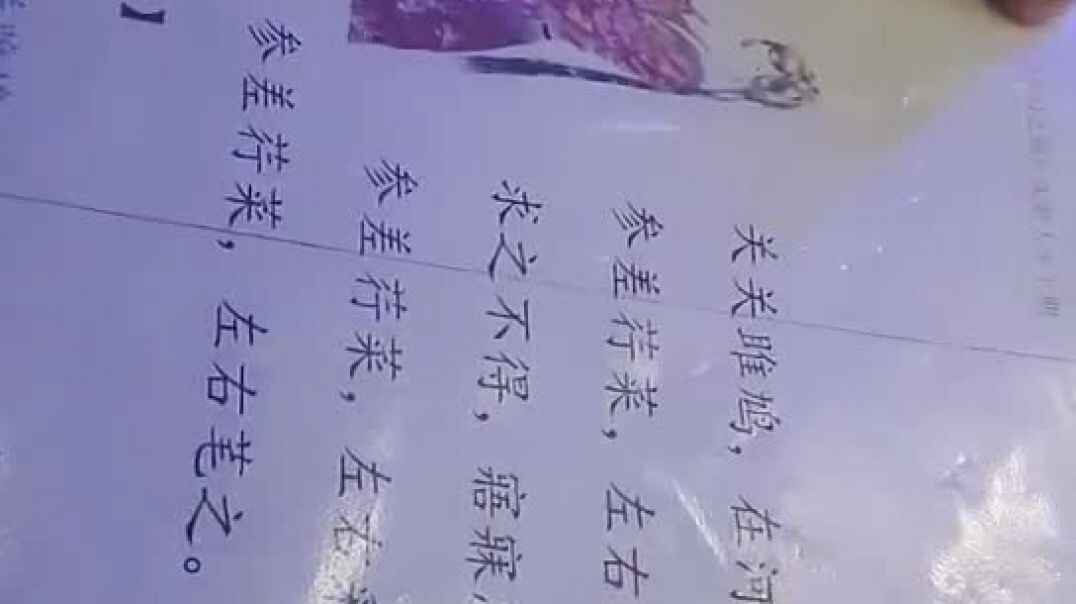 关关雎鸠，在河
参差荇菜，左右
求之不得，寤寐
参差荇菜，左右
参差荇菜，左右芼之。
】